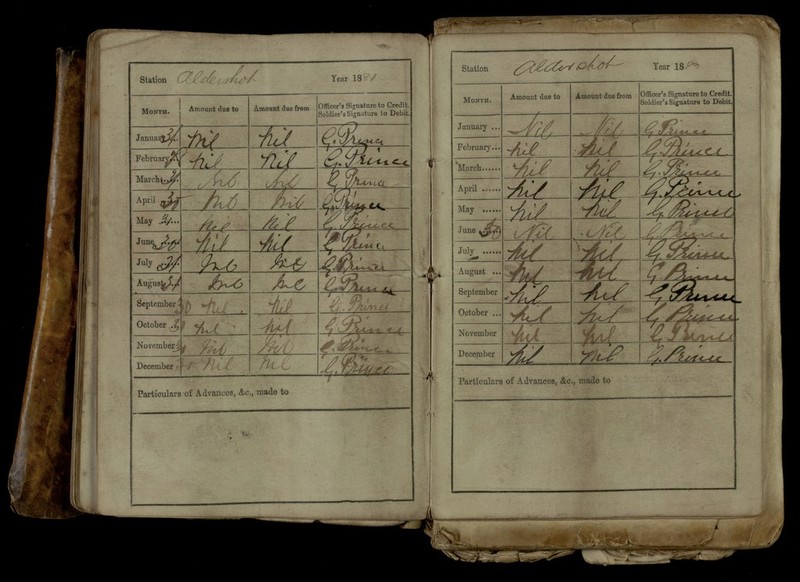 Station Aldershot Year 1881
MONTH. Amount due to Amount due from Officer's Signature to Credit. Soldier's Signature to Debit.
January 31 Nil Nil G. Prince
February Nil Nil G. Prince
March 31 Nil Nil G Prince
April 30 Nil Nil G. Prince
May 31 Nil Nil G Prince
June Nil Nil G Prince
July 31 Nil Nil G Prince
August 31 Nil Nil G Prince
September 30 Nil Nil G. Prince
October 31 Nil Nil G Prince
November 30 Nil Nil G. Prince
December Nil Nil G. Prince
Particulars of Advances, &c., made to
Station Aldershot Year 18
MONTH. Amount due to Amount due from Officer's Signature to Credit. Soldier's Signature to Debit.
January ... Nil Nil G Prince
February... Nil Nil G Prince
March...... Nil Nil G Prince
April ...... Nil Nil G. Prince
May ...... Nil Nil G Prince
June 30 Nil Nil G Prince
July ...... Nil Nil G Prince
August ... Nil Nil G Prince
September Nil Nil G Prince
October ... Nil Nil G Prince
November Nil Nil G Prince
December Nil Nil G. Prince
Particulars of Advances, &c., made to